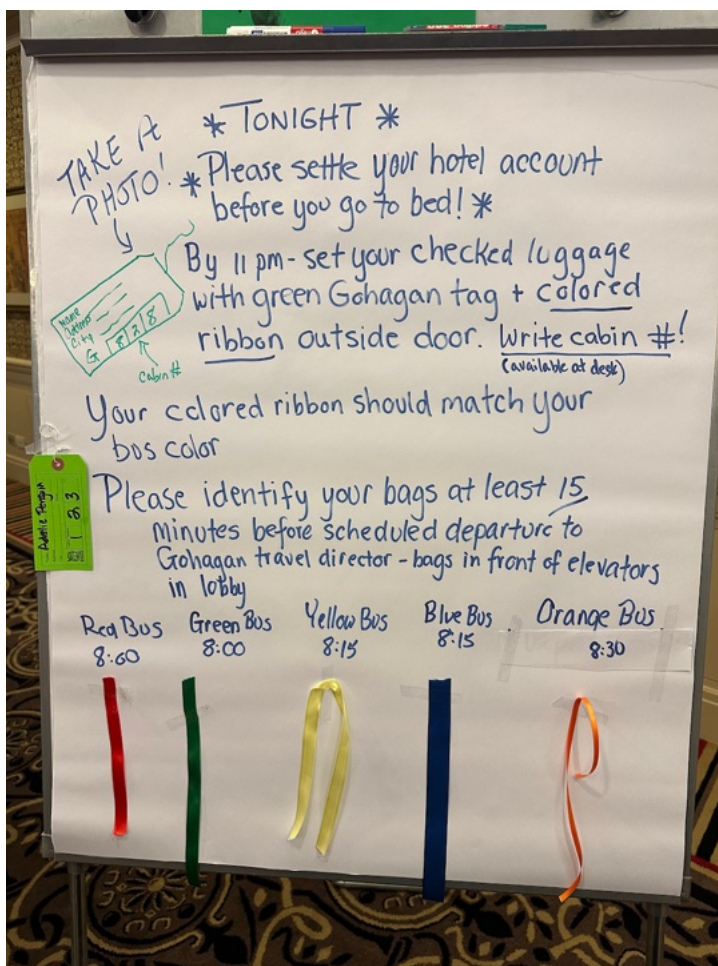 TAKE A
PHOTO!
* TONIGHT *
* Please settle your hotel account
before you go to bed! *
By 11 pm - set your checked luggage
with green Gohagan tag + colored
ribbon outside door. Write cabin #!
(available at desk)
Name
City
G 828
Cabin #
Your colored ribbon should match your
bus color
Please identify your bags at least 15
minutes before scheduled departure to
Gohagan travel director - bags in front of elevators
in lobby
Adelie Penguin
123
Red Bus
8:00
Green Bus
8:00
Yellow Bus
8:15
Blue Bus
8:15
Orange Bus
8:30